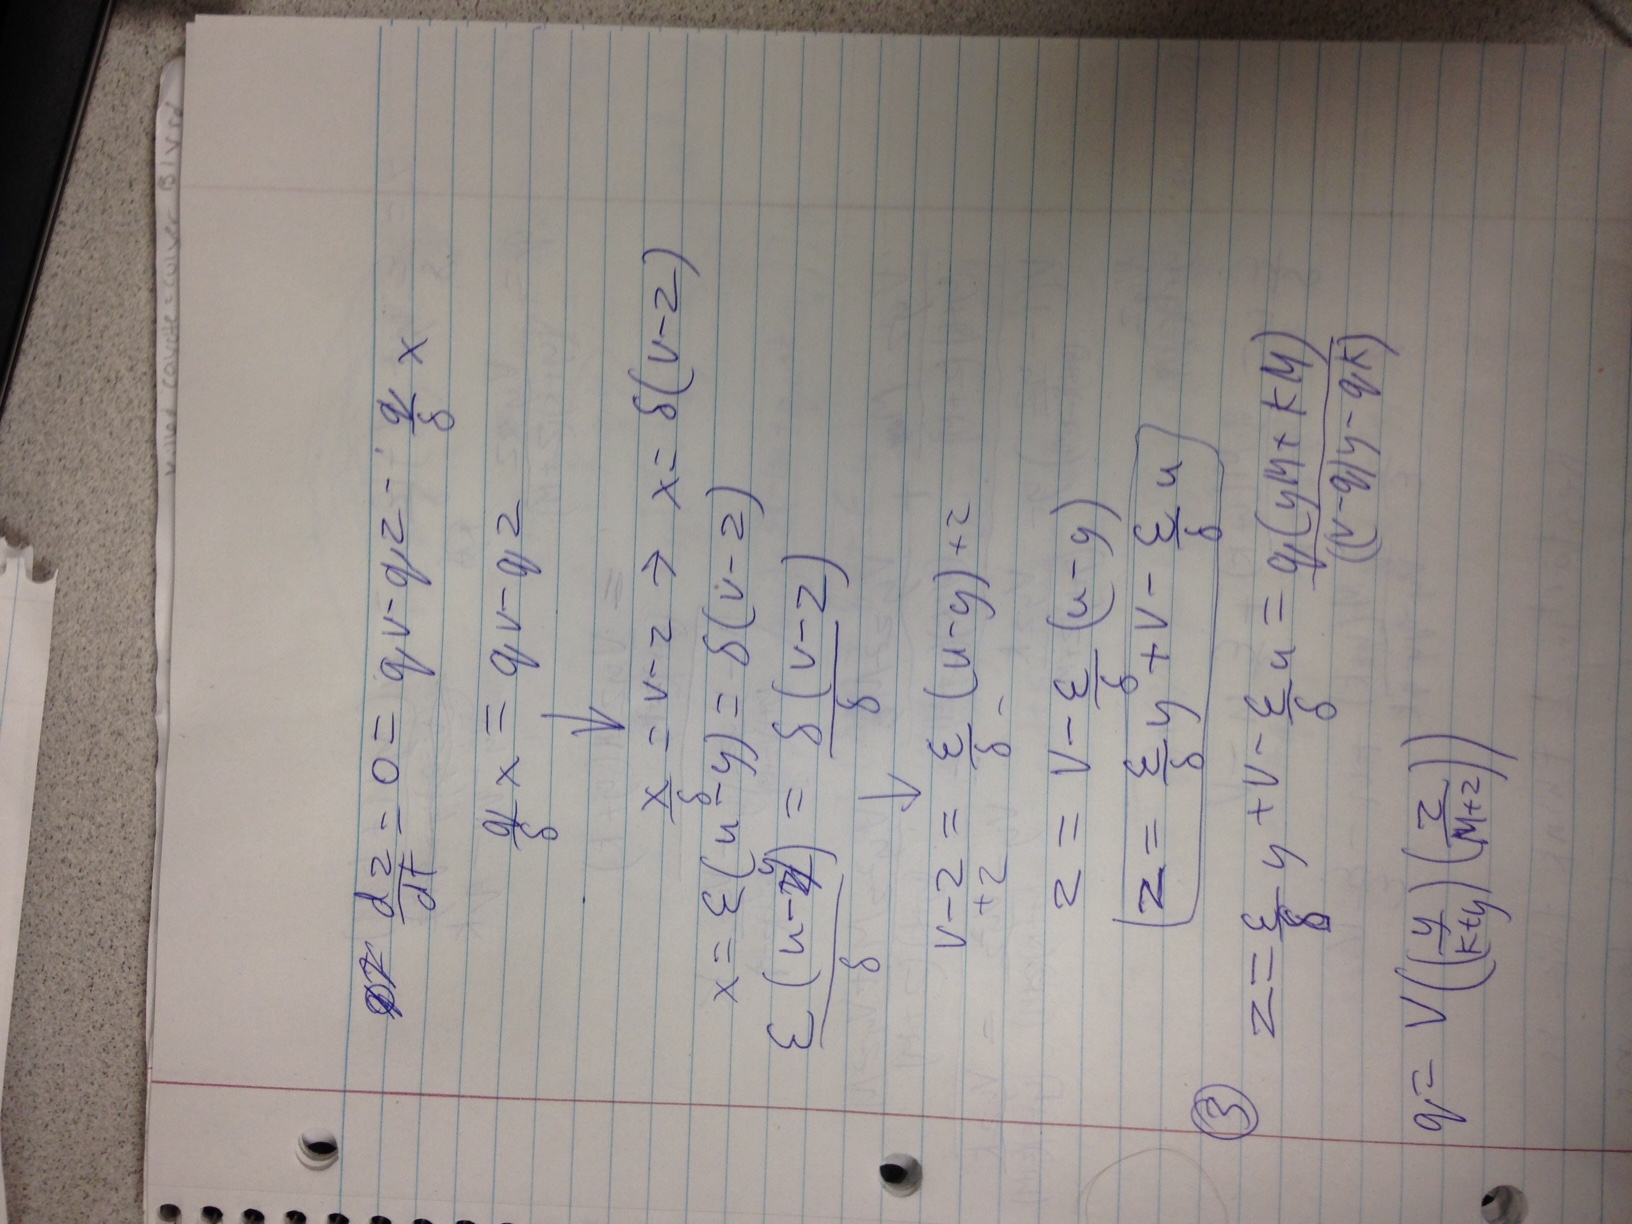 dz/dt = 0 = qv - qz - q/δ x
q/δ x = qv - qz
↓
x/δ = v - z → x = δ(v - z)
x = ε(u - y) = δ(v - z)
ε(u - y)/δ = δ(v - z)/δ
↓
v - z = ε/δ (u - y) + z
+ z
z = v - ε/δ (u - y)
z = ε/δ y + v - ε/δ u
③ z = ε/δ y + v - ε/δ u = q(yM + kM)/((v - q)y - qk)
q = V((y/(k+y))(z/(M+z)))